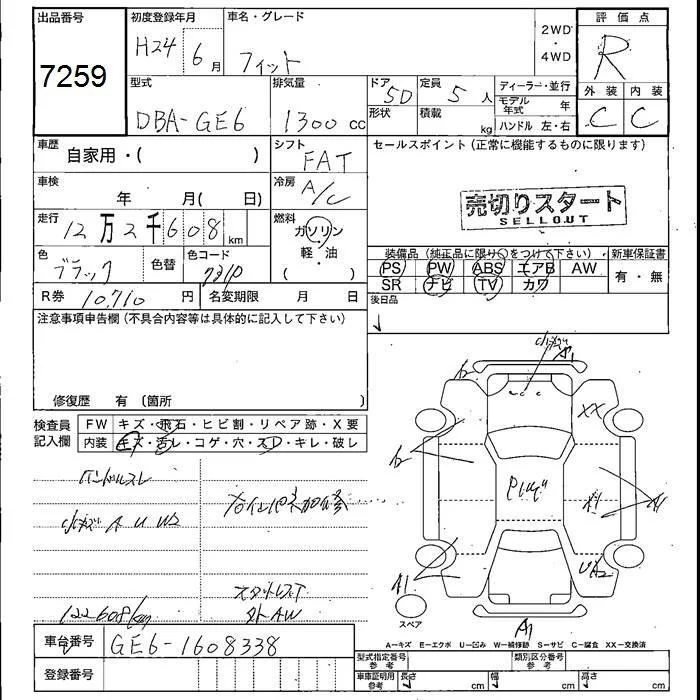 出品番号 初度登録年月 車名・グレード 評価点
7259 H24 6月 フィット 2WD・4WD R
型式 排気量 ドア 5D 定員 5人 ディーラー・並行 外装 内装
DBA-GE6 1300cc 形状 積載 kg モデル年式 年 C C
ハンドル 左・右
車歴 自家用・( ) シフト FAT セールスポイント(正常に機能するものに限ります)
車検 年 月( 日) 冷房 A/C
売切りスタート
SELLOUT
走行 12万2千608km 燃料 ガソリン
軽・油
( )
色 ブラック 色替 色コード 装備品(純正品に限り○をつけて下さい) 新車保証書
PS PW ABS エアB AW 有・無
SR ナビ TV カワ
R券 10,710円 名変期限 月 日 後日品
注意事項申告欄(不具合内容等は具体的に記入して下さい)
修復歴 有(箇所 )
A1
XX
検査員記入欄 FW キズ・飛石・ヒビ割・リペア跡・X要
内装 キズ・汚レ・コゲ・穴・スレ・キレ・破レ
ハンドルスレ
A U W2
UA2
A1
スタッドレスT
122608km 外AW
スペア
A1
A=キズ E=エクボ U=凹み W=補修跡 S=サビ C=腐食 XX=交換済
車台番号 GE6-1608338
型式指定番号 参考 類別区分番号 参考
登録番号 車庫証明用 参考 長さ cm 幅 cm 高さ cm